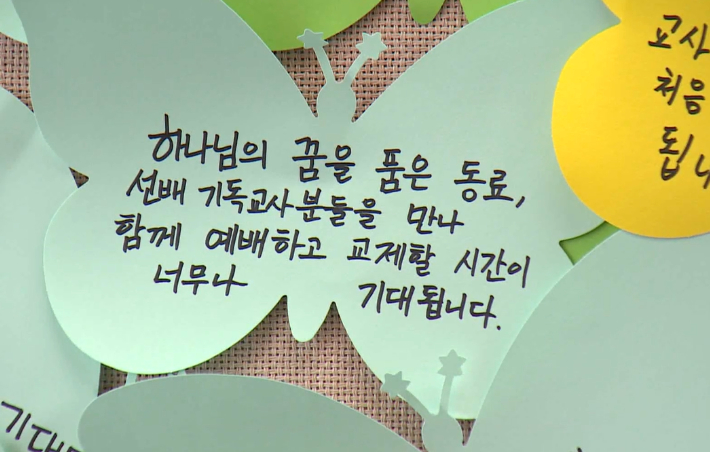 하나님의 꿈을 품은 동료,
선배 기독교사분들을 만나
함께 예배하고 교제할 시간이
너무나 기대됩니다.
교사
처음
됩니
기대